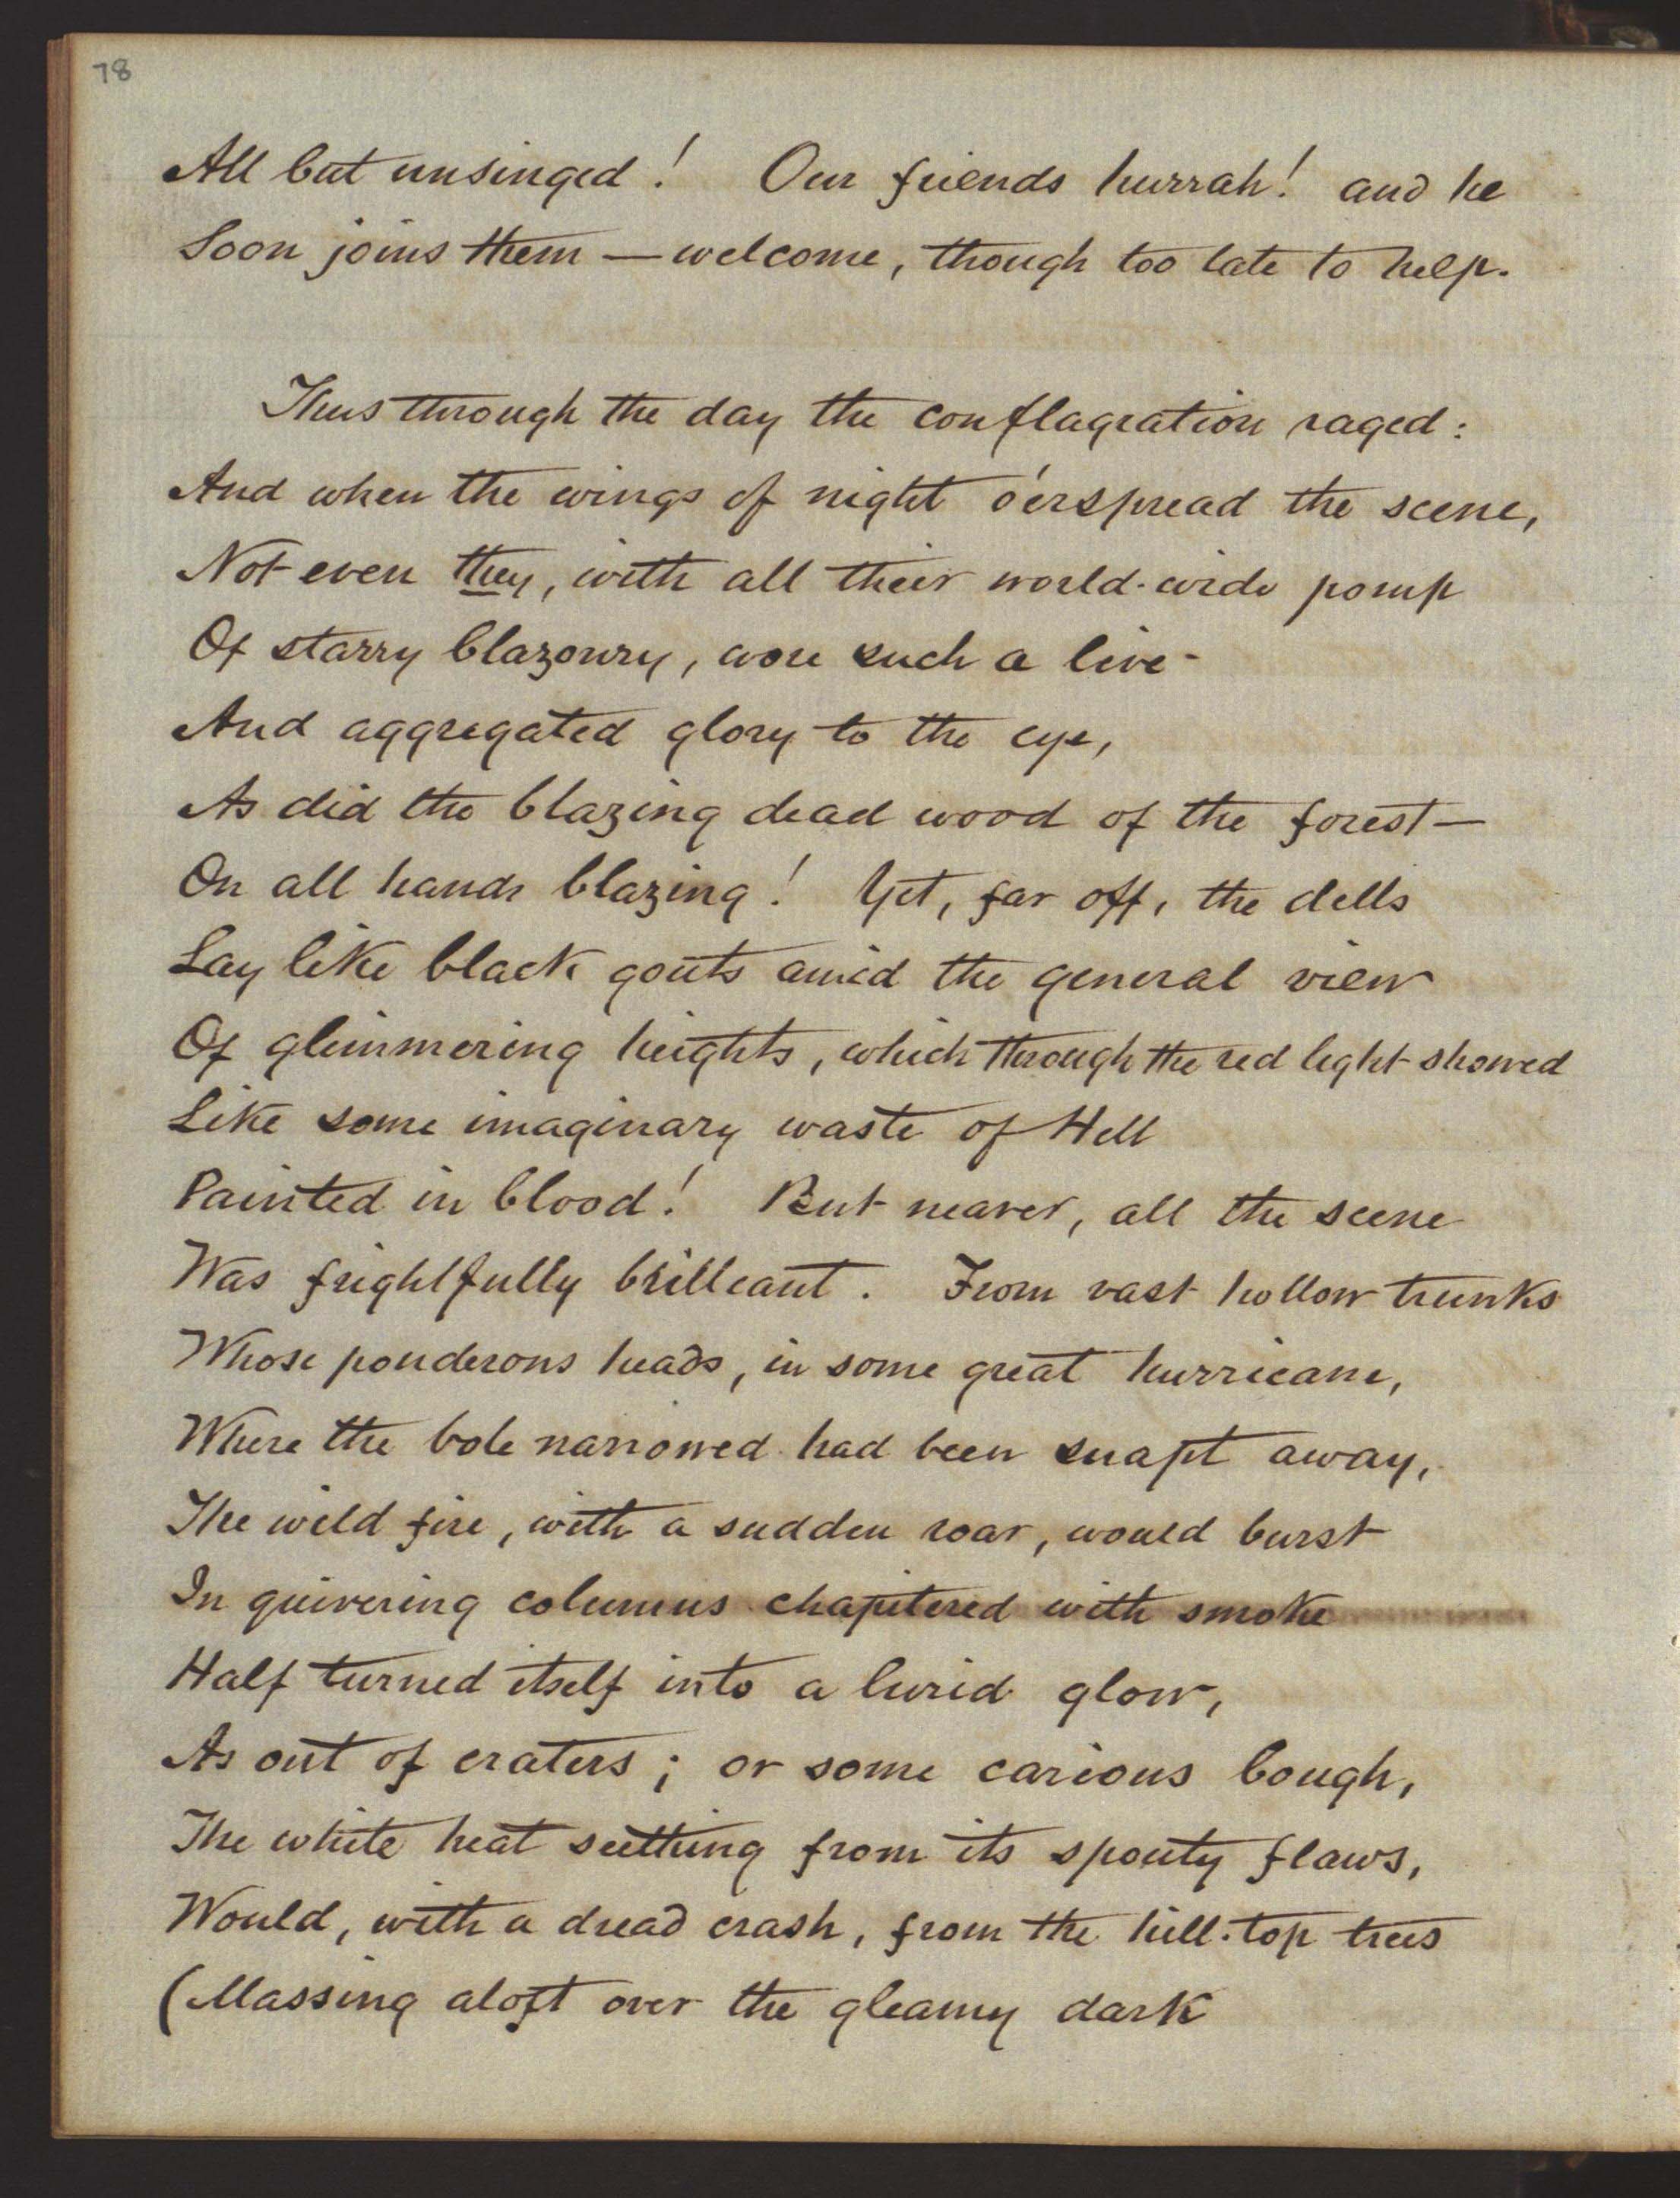 78
All but unsinged! Our friends hurrah! and he
Soon joins them — welcome, though too late to help.
Thus through the day the conflagration raged:
And when the wings of night o'erspread the scene,
Not even they, with all their world-wide pomp
Of starry blazonry, wore such a live
And aggregated glory to the eye,
As did the blazing dead wood of the forest —
On all hands blazing! Yet, far off, the dells
Lay like black gouts amid the general view
Of glimmering heights, which through the red light showed
Like some imaginary waste of Hell
Painted in blood! But nearer, all the scene
Was frightfully brilliant. From vast hollow trunks
Whose ponderous heads, in some great hurricane,
Where the bole narrowed had been snapt away,
The wild fire, with a sudden roar, would burst
In quivering columns chapitered with smoke
Half turned itself into a lurid glow,
As out of craters; or some carious bough,
The white heat seething from its spouty flaws,
Would, with a dread crash, from the hill-top trees
(Massing aloft over the gleamy dark